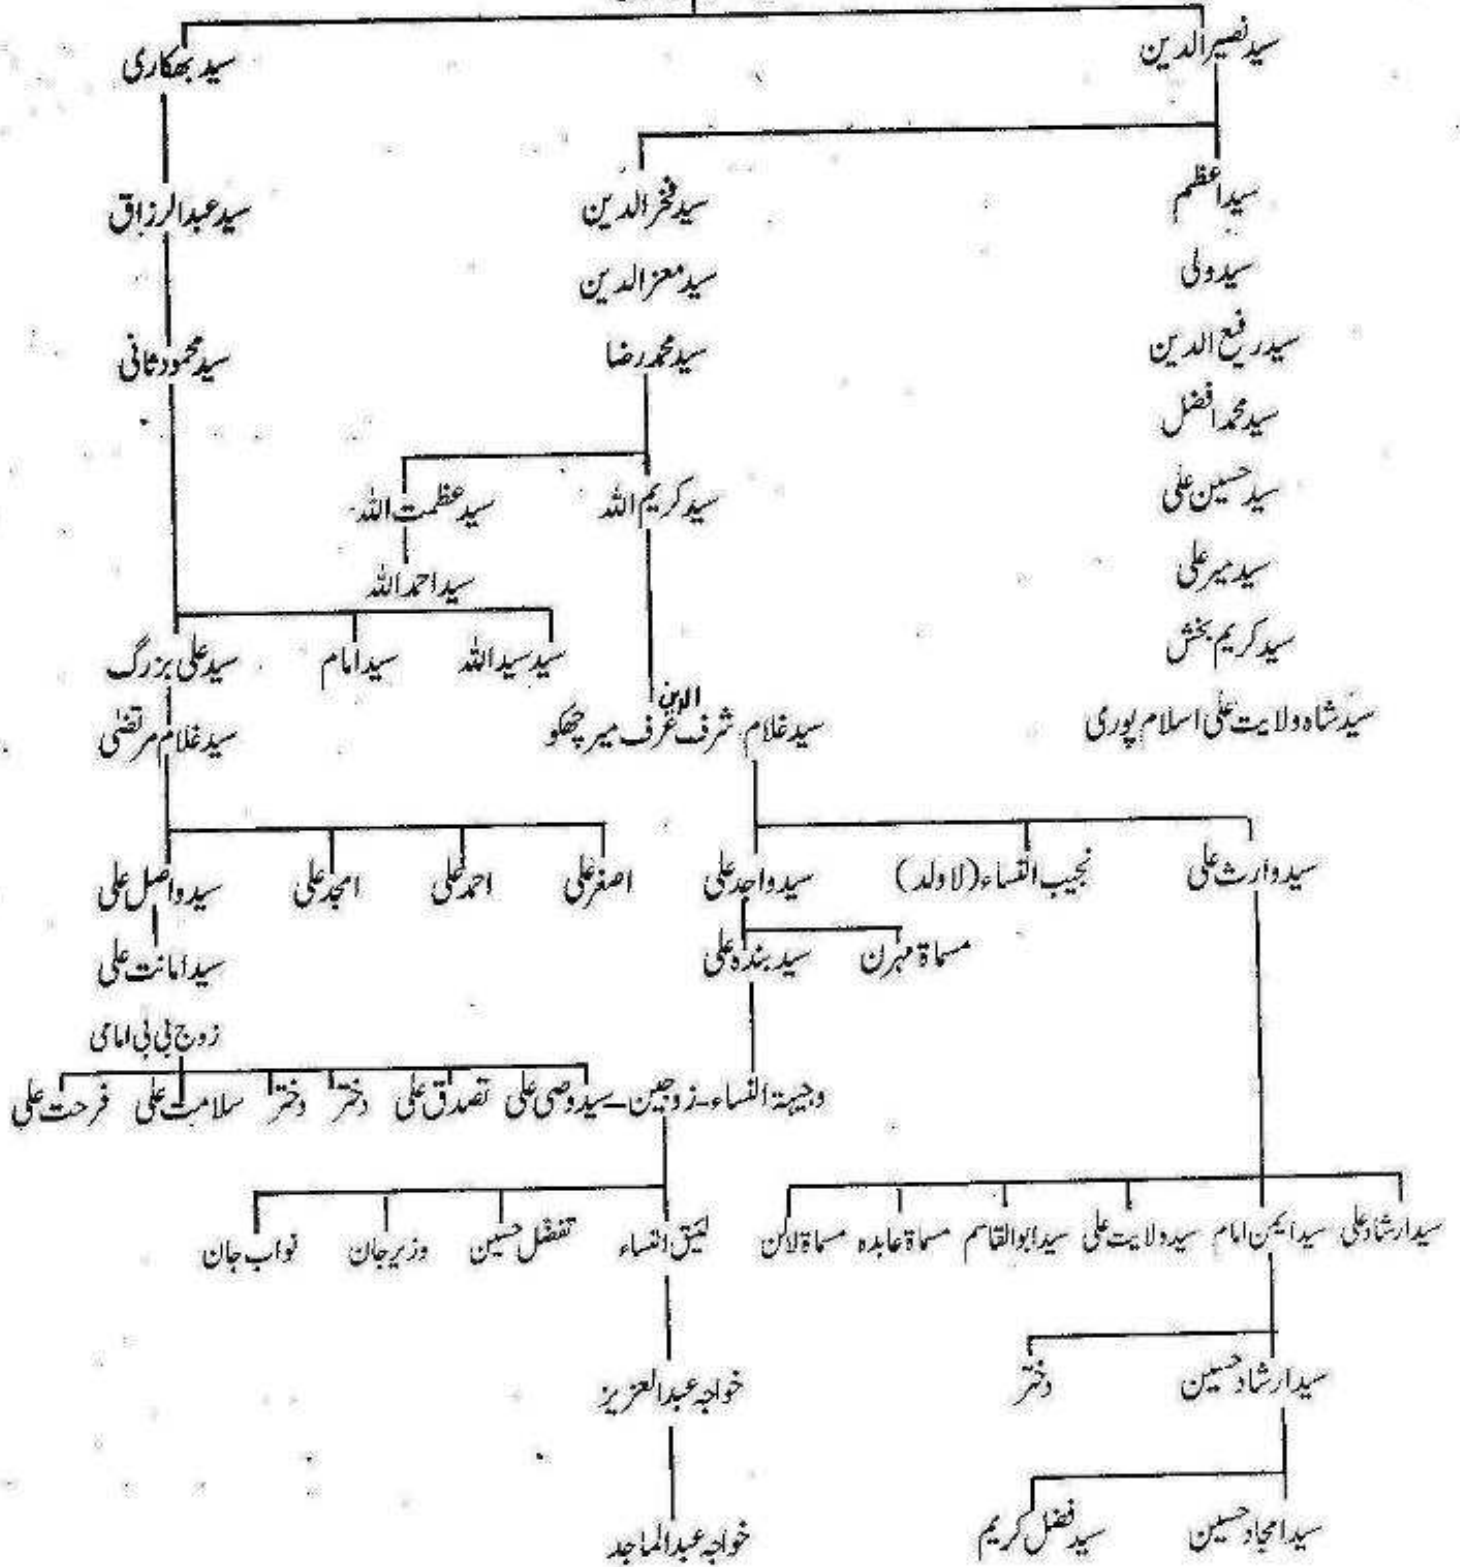 سید نصیر الدین	سید بھکاری
سید اعظم	سید فخر الدین	سید عبدالرزاق
سید ولی	سید معز الدین
سید رفیع الدین	سید محمد رضا	سید محمود ثانی
سید محمد افضل
سید حسین علی	سید کریم اللہ	سید عظمت اللہ
سید میر علی	سید احمد اللہ
سید کریم بخش	سید سید اللہ	سید امام	سید علی بزرگ
سید شاہ ولایت علی اسلام پوری	سید غلام شرف الدین عرف میر چھکو	سید غلام مرتضی
سید وارث علی	نجیب النساء (لا ولد)	سید واجد علی	اصغر علی	احمد علی	امجد علی	سید واصل علی
مسماۃ مہرن	سید بندہ علی	سید امانت علی
زوج بی بی امامی
وجیہۃ النساء - زوجین - سید وصی علی	تصدق علی	دختر	دختر	سلامت علی	فرحت علی
سید ارشاد علی	سید ایمن امام	سید ولایت علی	سید ابوالقاسم	مسماۃ عابدہ	مسماۃ لالن	لئیق النساء	تفضل حسین	وزیر جان	نواب جان
سید ارشاد حسین	دختر	خواجہ عبدالعزیز
سید امجاد حسین	سید فضل کریم	خواجہ عبدالماجد